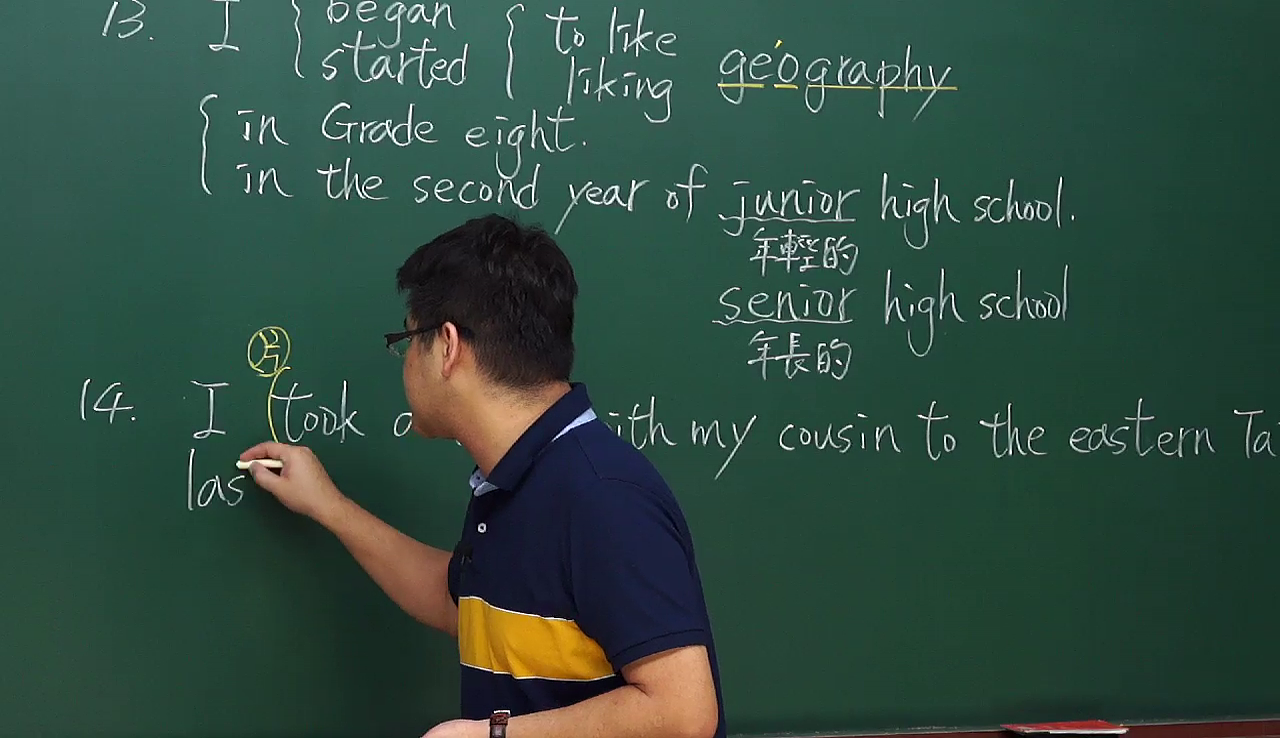 13. I { began { to like geography
started liking
{ in Grade eight.
in the second year of junior high school.
年輕的
senior high school
年長的
14. I took with my cousin to the eastern
las